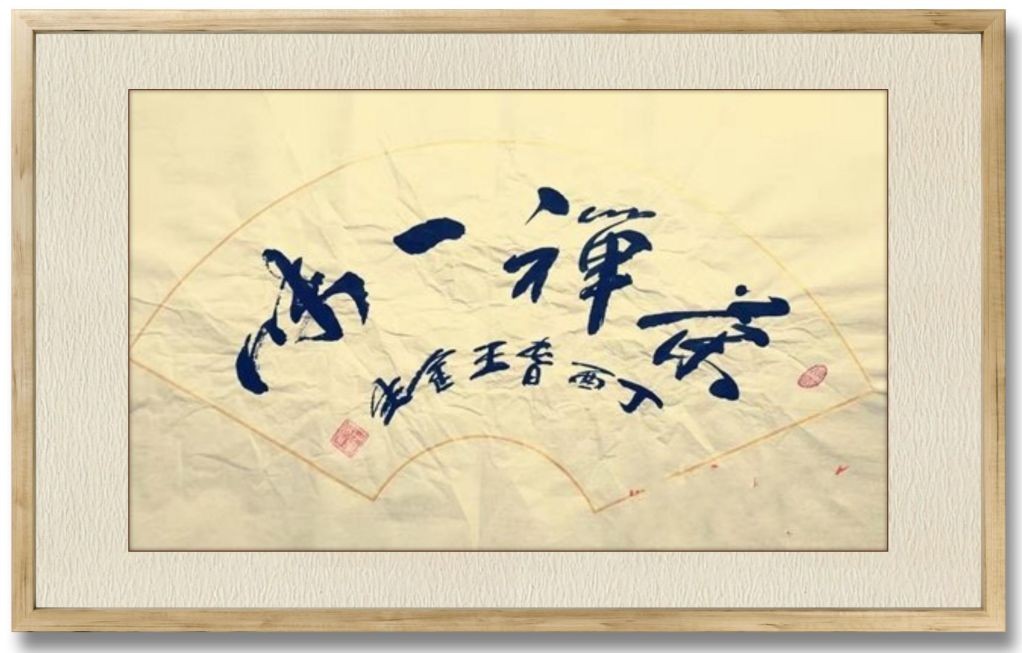 茶禪一味
丁酉春王